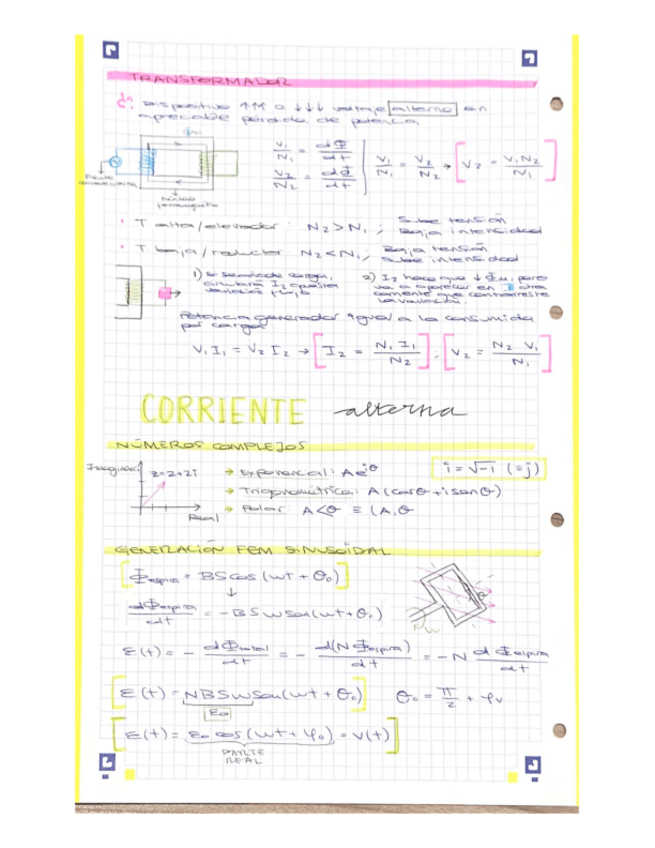 TRANSFORMADOR
d: Dispositivo ↑↑↑ o ↓↓↓ voltaje alterno sin
apreciable pérdida de potencia
Φm
V₁/N₁ = dΦ/dt
V₂/N₂ = dΦ/dt
V₁/N₁ = V₂/N₂ → [V₂ = V₁N₂/N₁]
Núcleo
ferromagnético
· T alta/elevador: N₂>N₁; Sube tensión
Baja intensidad
· T baja/reductor N₂<N₁; Baja tensión
sube intensidad
1) Se secundario carga,
circulará I₂ opuesta
variación flujo
2) I₂ hace que ↓Φm, pero
va a aparecer en I otra
corriente que contrarreste
la variación.
Potencia generador igual a la consumida
por cargas
V₁I₁ = V₂I₂ → [I₂ = N₁ I₁/N₂]; [V₂ = N₂ V₁/N₁]
CORRIENTE alterna
NÚMEROS COMPLEJOS
Imaginari
z=2+2i
Real
→ Exponencial: Ae^iθ
→ Trigonométrica: A(cosθ + i senθ)
→ Polar: A<θ ≡ (A,θ
i = √-1 (=j)
GENERACIÓN FEM SINUSOIDAL
[Φespira = BS cos (wt + θ₀)]
↓
dΦespira/dt = -BSw sen(wt + θ₀)
ε(t) = - dΦtotal/dt = - d(NΦespira)/dt = -N dΦespira/dt
[ε(t) = NBSw sen(wt + θ₀)] θ₀ = π/2 + φv
ε₀
[ε(t) = ε₀ cos (wt + φ₀) = V(t)]
PARTE
REAL